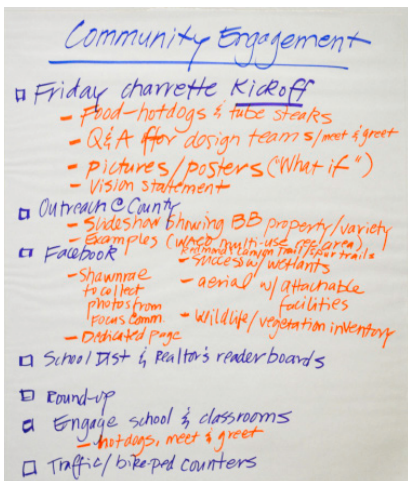 Community Engagement
Friday charrette Kickoff
- Food-hotdogs & tube steaks
- Q&A for design teams/meet & greet
- pictures/posters ("What if")
- Vision statement
Outreach @ County
- Slideshow showing BB property/variety
- Examples (WACO multi-use rec area)
Canyon Trail/spur trails
Facebook
- success w/ wetlands
- Shawnrae
to collect
photos from
Focus Comm.
- Dedicated page
- aerial w/ attachable
facilities
- Wildlife/vegetation inventory
School Dist & Realtor's readerboards
Round-up
Engage school & classrooms
- hotdogs, meet & greet
Traffic/bike-ped counters